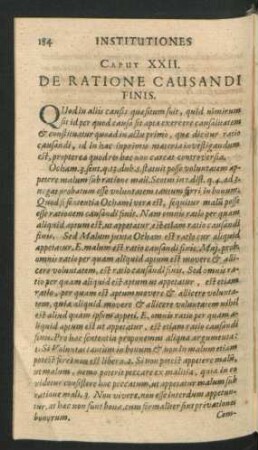 184 INSTITUTIONES
CAPUT XXII.
DE RATIONE CAUSANDI
FINIS.
QUod in aliis causis quæsitum fuit, quid nimirum
sit id per quod causa sit apta exercere causalitatem
& constituatur quoad in actu primo, quæ dicitur ratio
causandi, id in hac suprema materia investigandum
est, propterea quod res hæc non careat controversia.
Ocham statuit posse voluntatem appe-
tere malum sub ratione mali.
probatum esse voluntatem tantum ferri in bonum.
Quod si sententia Ochami vera est, sequitur malum posse
esse rationem causandi finis. Nam omnis ratio per quam
aliquid aptum est ut appetatur, est etiam ratio causandi
finis. Sed Malum juxta Ocham est ratio cur aliquid
appetatur. E. malum est ratio causandi finis. Maj. prob.
omnis ratio per quam aliquid aptum est movere & alli-
cere voluntatem, est ratio causandi finis. Sed omnis ra-
tio per quam aliquid est aptum ut appetatur, est etiam
ratio, per quam est aptum movere & allicere volunta-
tem, quia aliquid movere & allicere voluntatem nihil
est aliud quam ipsum appeti. E. omnis ratio per quam a-
liquid aptum est ut appetatur, est etiam ratio causandi
finis. Pro hac sententia proponemus aliqua argumenta.
1. Si Voluntas tantum in bonum & non in malum etiam
potest ferri non est libera. 2. Si non possit appetere malum,
ut malum, nemo poterit peccare ex malitia, quia in eo
videtur consistere hoc peccatum, ut appetatur malum sub
ratione mali. 3. Non vivere, non esse interdum appetun-
tur, at hæc non sunt bona, cum formaliter sint privationes
bonorum.
Com-